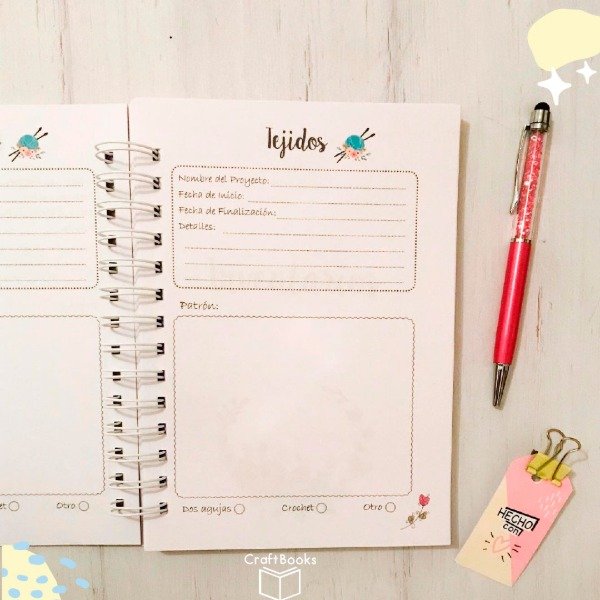 Tejidos
Nombre del Proyecto:
Fecha de Inicio:
Fecha de Finalización:
Detalles:
Patrón:
Dos agujas
Crochet
Otro
et
Otro
HECHO
con
CraftBooks